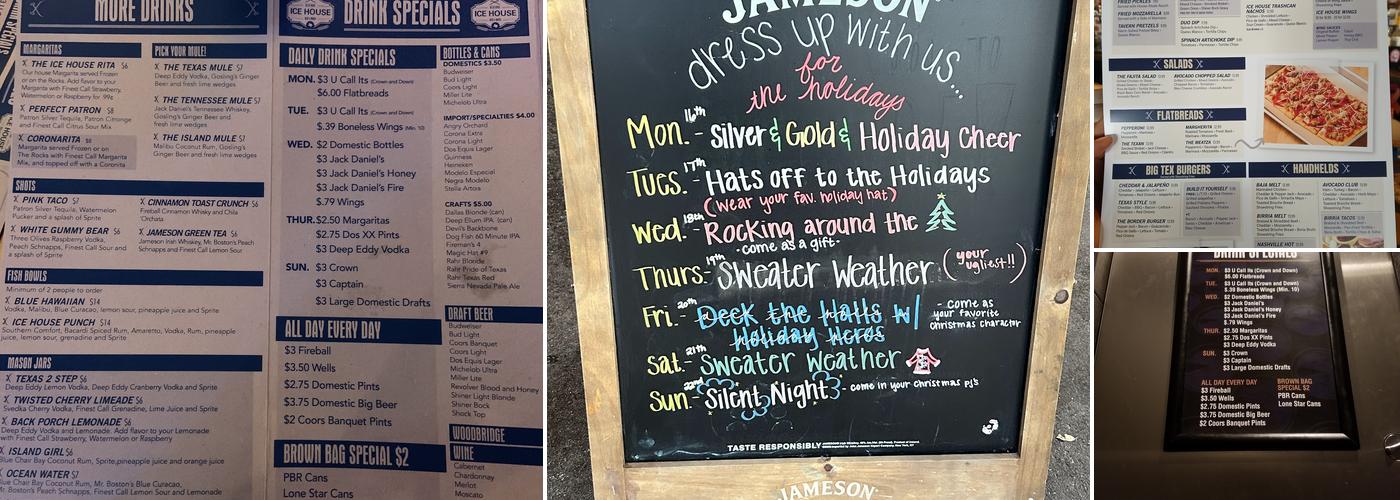 MORE DRINKS
MARGARITAS
THE ICE HOUSE RITA $6
Our house Margarita served Frozen
or on the Rocks. Add flavor to your
Margarita with Finest Call Strawberry,
Watermelon or Raspberry for 99¢
PERFECT PATRON $8
Patron Silver Tequila, Patron Citronge
and Finest Call Citrus Sour Mix
CORONARITA $8
Margarita served Frozen or on
The Rocks with Finest Call Margarita
Mix, and topped off with a Coronita
PICK YOUR MULE!
THE TEXAS MULE $7
Deep Eddy Vodka, Gosling's Ginger
Beer and fresh lime wedges
THE TENNESSEE MULE $7
Jack Daniel's Tennessee Whiskey,
Gosling's Ginger Beer and
fresh lime wedges
THE ISLAND MULE $7
Malibu Coconut Rum, Gosling's
Ginger Beer and fresh lime wedges
SHOTS
PINK TACO $7
Patron Silver Tequila, Watermelon
Pucker and a splash of Sprite
WHITE GUMMY BEAR $6
Three Olives Raspberry Vodka,
Peach Schnapps, Finest Call Sour and
a splash of Sprite
CINNAMON TOAST CRUNCH $6
Fireball Cinnamon Whisky and Chila
'Orchata
JAMESON GREEN TEA $6
Jameson Irish Whiskey, Mr. Boston's Peach
Schnapps and Finest Call Lemon Sour
FISH BOWLS
Minimum of 2 people to order
BLUE HAWAIIAN $14
Vodka, Malibu, Blue Curacao, lemon sour, pineapple juice and Sprite
ICE HOUSE PUNCH $14
Southern Comfort, Bacardi Spiced Rum, Amaretto, Vodka, Rum, pineapple
juice, lemon sour, grenadine and Sprite
MASON JARS
TEXAS 2 STEP $6
Deep Eddy Lemon Vodka, Deep Eddy Cranberry Vodka and Sprite
TWISTED CHERRY LIMEADE $6
Svedka Cherry Vodka, Finest Call Grenadine, Lime Juice and Sprite
BACK PORCH LEMONADE $6
Deep Eddy Vodka and Lemonade. Add flavor to your Lemonade
with Finest Call Strawberry, Watermelon or Raspberry
ISLAND GIRL $6
Blue Chair Bay Coconut Rum, Sprite, pineapple juice and orange juice
OCEAN WATER $7
Blue Chair Bay Coconut Rum, Mr. Boston's Blue Curacao,
Mr. Boston's Peach Schnapps, Finest Call Lemon Sour and Lemonade
ICE HOUSE
DRINK SPECIALS
ICE HOUSE
DAILY DRINK SPECIALS
MON. $3 U Call Its (Crown and Down)
$6.00 Flatbreads
TUE. $3 U Call Its (Crown and Down)
$.39 Boneless Wings (Min. 10)
WED. $2 Domestic Bottles
$3 Jack Daniel's
$3 Jack Daniel's Honey
$3 Jack Daniel's Fire
$.79 Wings
THUR. $2.50 Margaritas
$2.75 Dos XX Pints
$3 Deep Eddy Vodka
SUN. $3 Crown
$3 Captain
$3 Large Domestic Drafts
ALL DAY EVERY DAY
$3 Fireball
$3.50 Wells
$2.75 Domestic Pints
$3.75 Domestic Big Beer
$2 Coors Banquet Pints
BROWN BAG SPECIAL $2
PBR Cans
Lone Star Cans
BOTTLES & CANS
DOMESTICS $3.50
Budweiser
Bud Light
Coors Light
Miller Lite
Michelob Ultra
IMPORT/SPECIALTIES $4.00
Angry Orchard
Corona Extra
Corona Light
Dos Equis Lager
Guinness
Heineken
Modelo Especial
Negra Modelo
Stella Artois
CRAFTS $5.00
Dallas Blonde (can)
Deep Ellum IPA (can)
Devil's Backbone
Dog Fish 60 Minute IPA
Fireman's 4
Magic Hat #9
Rahr Blonde
Rahr Pride of Texas
Rahr Texas Red
Sierra Nevada Pale Ale
DRAFT BEER
Budweiser
Bud Light
Coors Banquet
Coors Light
Dos Equis Lager
Michelob Ultra
Miller Lite
Revolver Blood and Honey
Shiner Light Blonde
Shiner Bock
Shock Top
WOODBRIDGE
WINE
Cabernet
Chardonnay
Merlot
Moscato
JAMESON
dress up with us...
for
the holidays
Mon. 16th - Silver & Gold & Holiday Cheer
Tues. 17th - Hats off to the Holidays
(wear your fav. holiday hat)
Wed. 18th - Rocking around the
- come as a gift -
Thurs. 19th - Sweater Weather (your
ugliest!!)
Fri. 20th - Deck the Halls w/
Holiday Heros
- Come as
your favorite
christmas character
Sat. 21th - Sweater Weather
Sun. 22nd - Silent Night - come in your Christmas pj's
TASTE RESPONSIBLY.
JAMESON
FRIED PICKLES
FRIED MOZZARELLA
TAVERN PRETZELS
DUO DIP
SPINACH ARTICHOKE DIP
ICE HOUSE TRASHCAN
NACHOS
ICE HOUSE WINGS
SALADS
THE FAJITA SALAD
AVOCADO CHOPPED SALAD
FLATBREADS
PEPPERONI
MARGHERITA
THE TEXAN
THE MEATZA
BIG TEX BURGERS
CHEDDAR & JALAPEÑO
TEXAS STYLE
THE BORDER BURGER
BUILD IT YOURSELF
HANDHELDS
BAJA MELT
AVOCADO CLUB
BIRRIA MELT
BIRRIA TACOS
NASHVILLE HOT
DRINK SPECIALS
MON. $3 U Call Its (Crown and Down)
$6.00 Flatbreads
TUE. $3 U Call Its (Crown and Down)
$.39 Boneless Wings (Min. 10)
WED. $2 Domestic Bottles
$3 Jack Daniel's
$3 Jack Daniel's Honey
$3 Jack Daniel's Fire
$.79 Wings
THUR. $2.50 Margaritas
$2.75 Dos XX Pints
$3 Deep Eddy Vodka
SUN. $3 Crown
$3 Captain
$3 Large Domestic Drafts
ALL DAY EVERY DAY
$3 Fireball
$3.50 Wells
$2.75 Domestic Pints
$3.75 Domestic Big Beer
$2 Coors Banquet Pints
BROWN BAG
SPECIAL $2
PBR Cans
Lone Star Cans